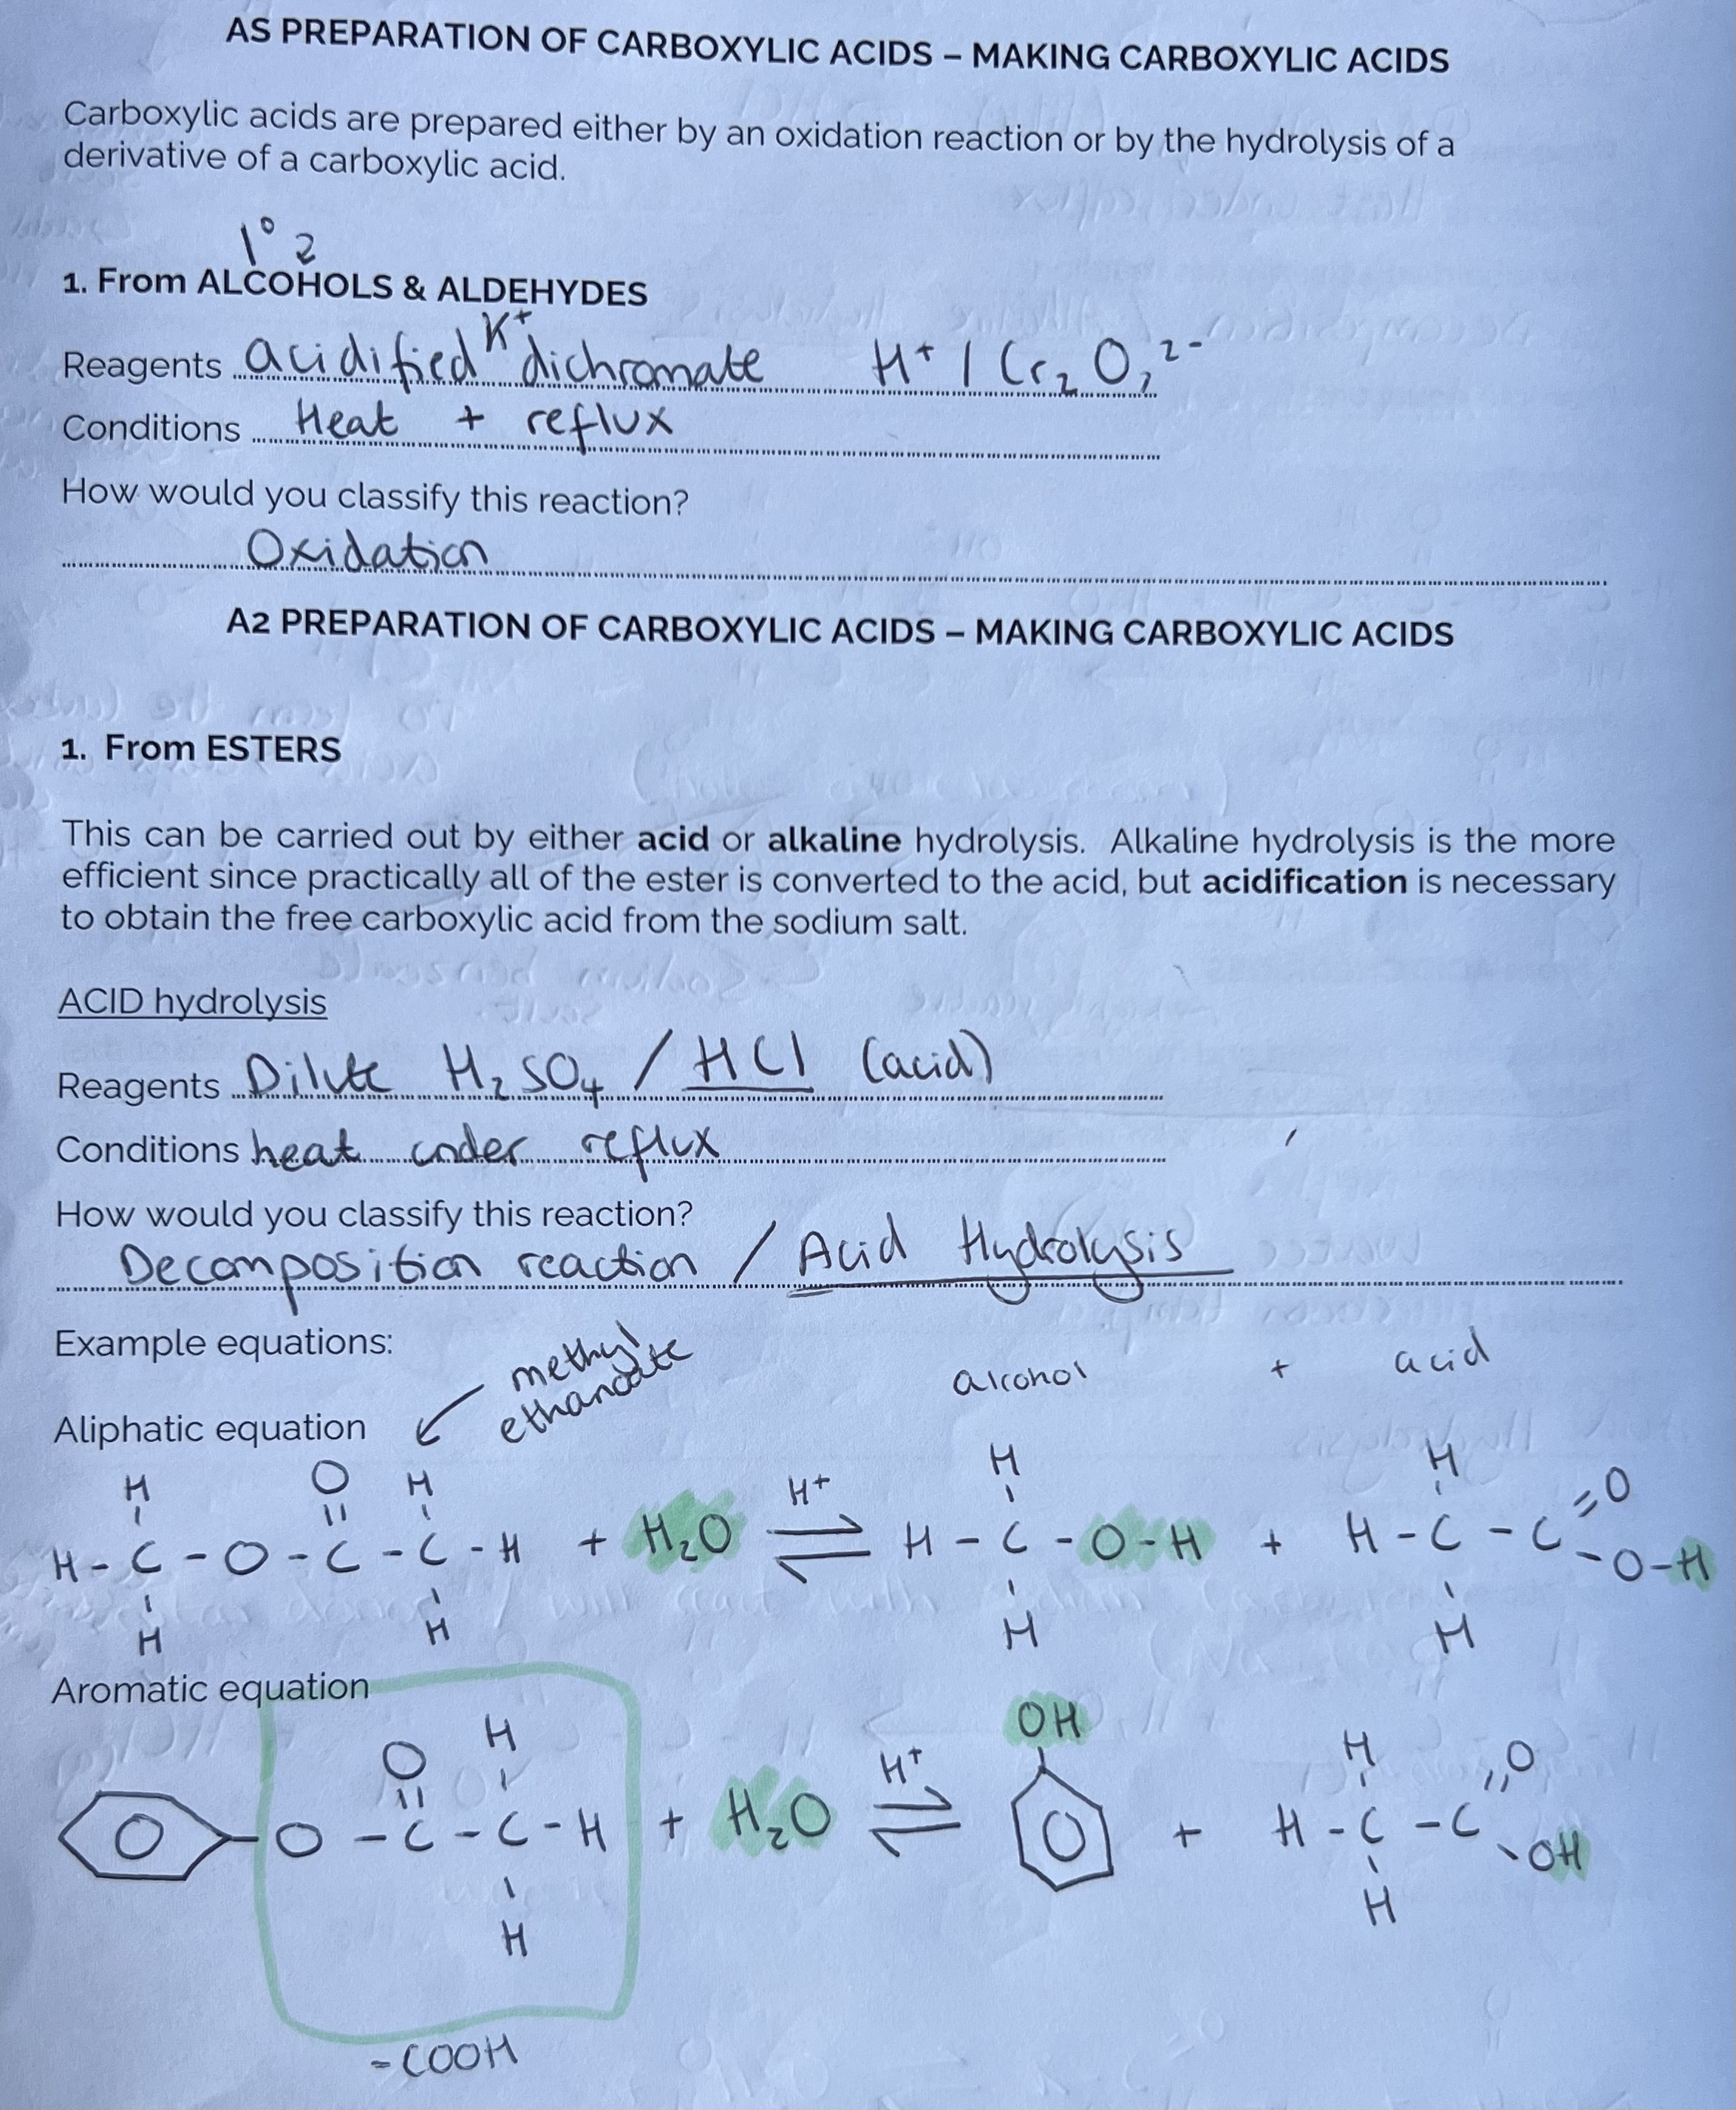 AS PREPARATION OF CARBOXYLIC ACIDS – MAKING CARBOXYLIC ACIDS
Carboxylic acids are prepared either by an oxidation reaction or by the hydrolysis of a
derivative of a carboxylic acid.
1° 2
1. From ALCOHOLS & ALDEHYDES
K⁺
Reagents acidified dichromate H⁺ / Cr₂O₇²⁻
Conditions Heat + reflux
How would you classify this reaction?
Oxidation
A2 PREPARATION OF CARBOXYLIC ACIDS – MAKING CARBOXYLIC ACIDS
1. From ESTERS
This can be carried out by either acid or alkaline hydrolysis. Alkaline hydrolysis is the more
efficient since practically all of the ester is converted to the acid, but acidification is necessary
to obtain the free carboxylic acid from the sodium salt.
ACID hydrolysis
Reagents Dilute H₂SO₄ / HCl (acid)
Conditions heat under reflux
How would you classify this reaction?
Decomposition reaction / Acid Hydrolysis
Example equations:
methyl
ethanoate
alcohol + acid
Aliphatic equation
H O H H H
H - C - O - C - C - H + H₂O ⇌ H⁺ H - C - O - H + H - C - C = O - O - H
H H H H
Aromatic equation
O H OH H O
O - C - C - H + H₂O ⇌ H⁺ + H - C - C - OH
H H
- COOH